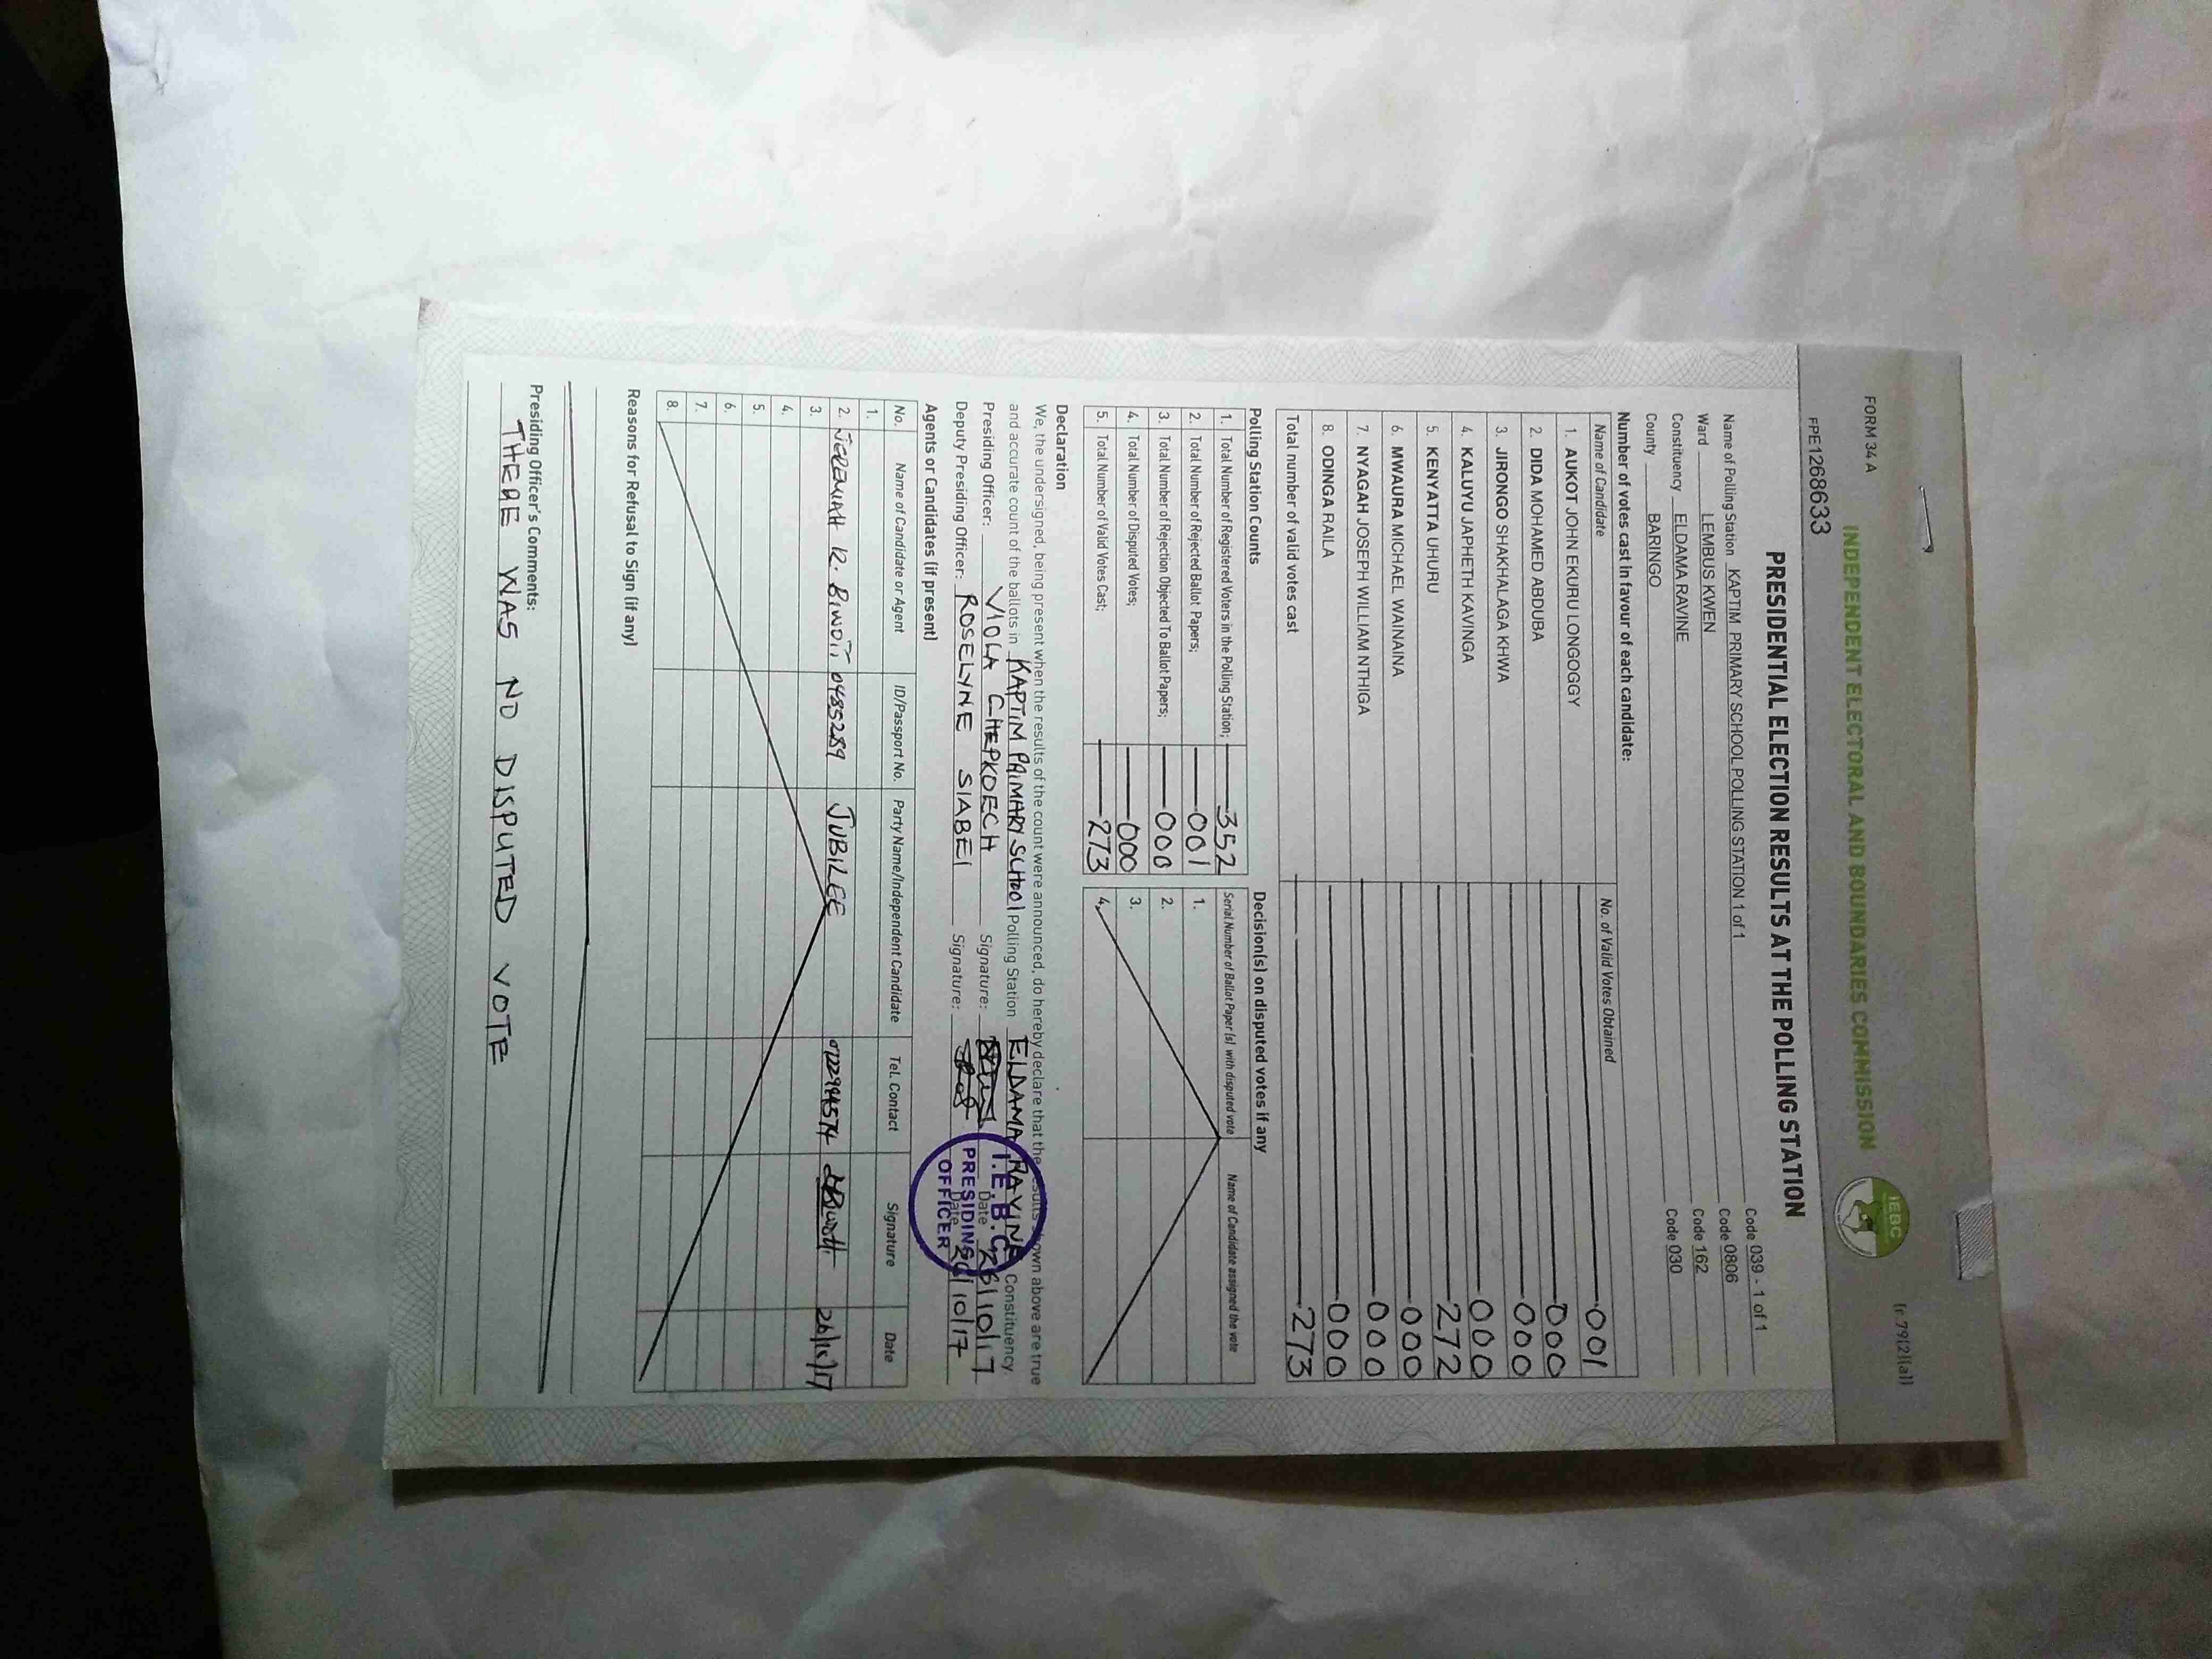 FORM 34 A
(r.79(2)(a))
INDEPENDENT ELECTORAL AND BOUNDARIES COMMISSION
IEBC
FPE1268633
PRESIDENTIAL ELECTION RESULTS AT THE POLLING STATION
Name of Polling Station KAPTIM PRIMARY SCHOOL POLLING STATION 1 of 1 Code 039 - 1 of 1
Ward LEMBUS KWEN Code 0806
Constituency ELDAMA RAVINE Code 162
County BARINGO Code 030
Number of votes cast in favour of each candidate:
Name of Candidate No. of Valid Votes Obtained
1. AUKOT JOHN EKURU LONGOGGY 001
2. DIDA MOHAMED ABDUBA 000
3. JIRONGO SHAKHALAGA KHWA 000
4. KALUYU JAPHETH KAVINGA 000
5. KENYATTA UHURU 272
6. MWAURA MICHAEL WAINAINA 000
7. NYAGAH JOSEPH WILLIAM NTHIGA 000
8. ODINGA RAILA 000
Total number of valid votes cast 273
Polling Station Counts
1. Total Number of Registered Voters in the Polling Station; 352
2. Total Number of Rejected Ballot Papers; 001
3. Total Number of Rejection Objected To Ballot Papers; 000
4. Total Number of Disputed Votes; 000
5. Total Number of Valid Votes Cast; 273
Decision(s) on disputed votes if any
Serial Number of Ballot Paper(s) with disputed vote Name of Candidate assigned the vote
1.
2.
3.
4.
Declaration
We, the undersigned, being present when the results of the count were announced, do hereby declare that the results shown above are true
and accurate count of the ballots in KAPTIM PRIMARY SCHOOL Polling Station ELDAMA RAVINE Constituency.
Presiding Officer: VIOLA CHEPKOECH Signature: Date 26/10/17
Deputy Presiding Officer: ROSELYNE SIABEI Signature: Date 26/10/17
I.E.B.C
PRESIDING
OFFICER
Agents or Candidates (if present)
No. Name of Candidate or Agent ID/Passport No. Party Name/Independent Candidate Tel. Contact Signature Date
1.
2. JEREMIAH R. BIWOTT 0485289 JUBILEE 0722994574 26/10/17
3.
4.
5.
6.
7.
8.
Reasons for Refusal to Sign (if any)
Presiding Officer's Comments:
THERE WAS NO DISPUTED VOTE